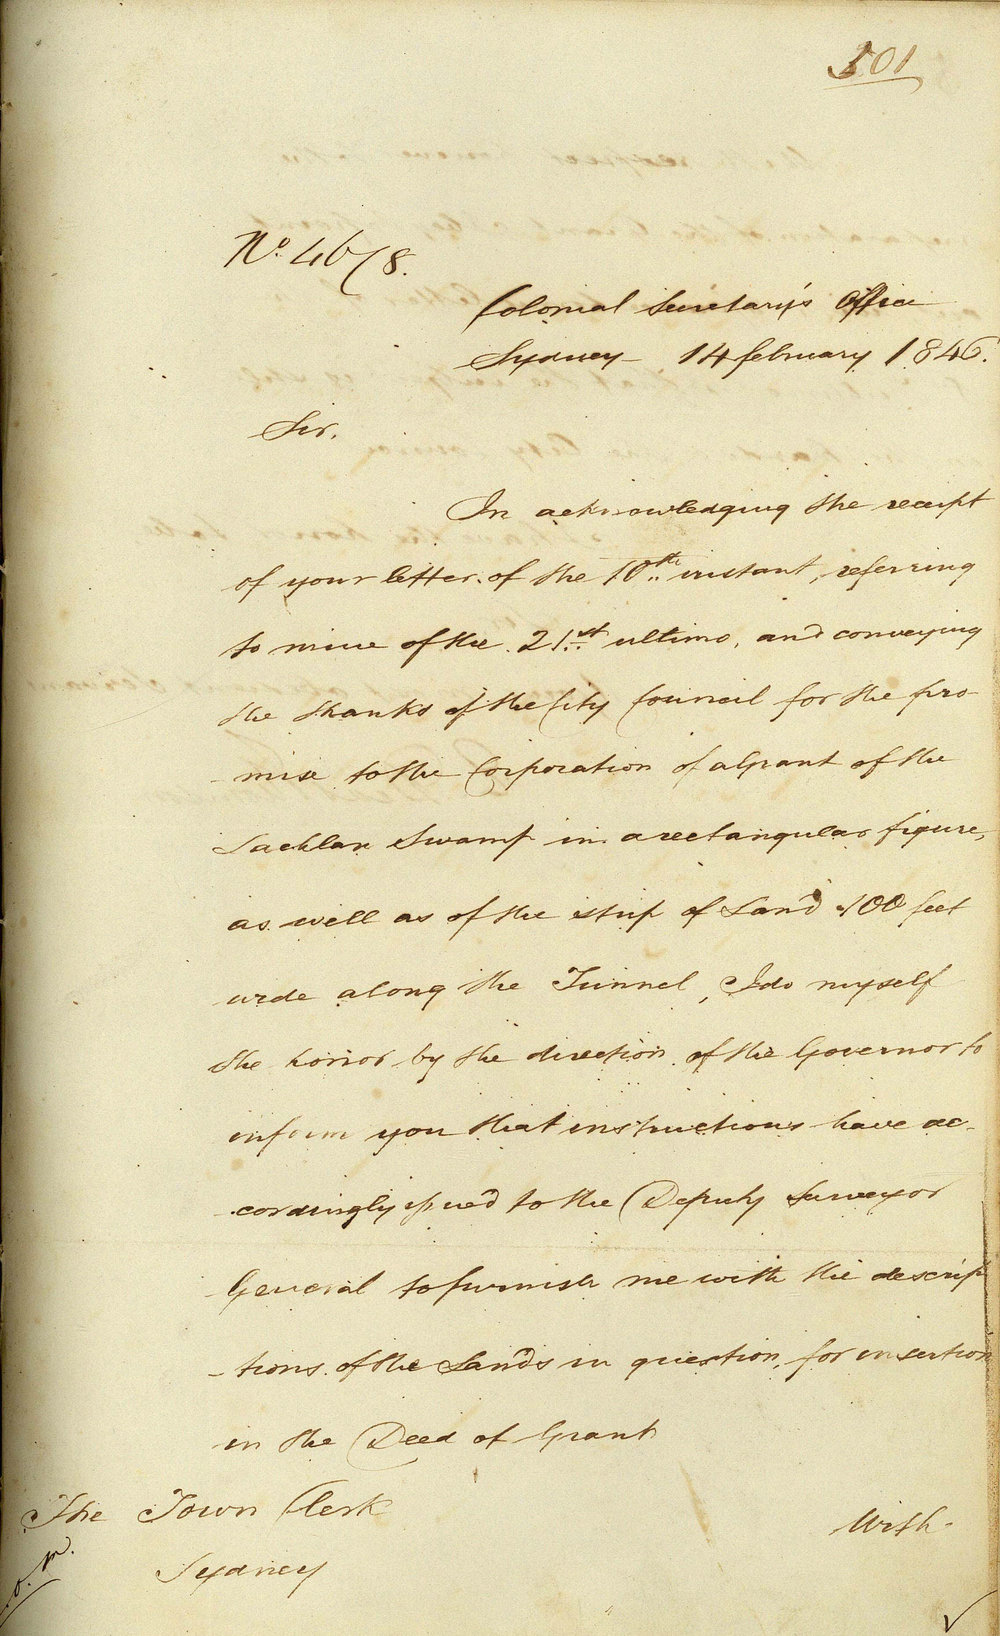 501
No. 46/8.
Colonial Secretary's Office
Sydney 14 february 1846.
Sir,
In acknowledging the receipt
of your letter of the 10th instant, referring
to mine of the 21st ultimo, and conveying
the thanks of the City Council for the pro
-mise to the Corporation of a Grant of the
Lachlan Swamp in a rectangular figure,
as well as of the strip of Land 100 feet
wide along the Tunnel, I do myself
the honor by the direction of the Governor to
inform you that instructions have ac-
cordingly issued to the Deputy Surveyor
General to furnish me with the descrip
-tions of the Lands in question, for insertion
in the Deed of Grant
The Town Clerk
Sydney
With